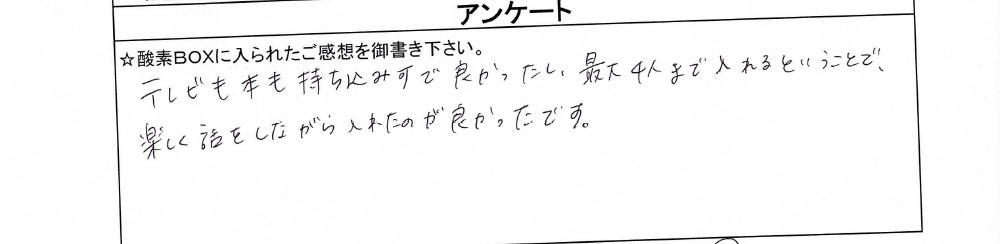 アンケート
☆酸素BOXに入られたご感想を御書き下さい。
テレビも本も持ち込みすで良かったし、最大4人まで入れるということで、
楽しく話をしながら入れたのが良かったです。